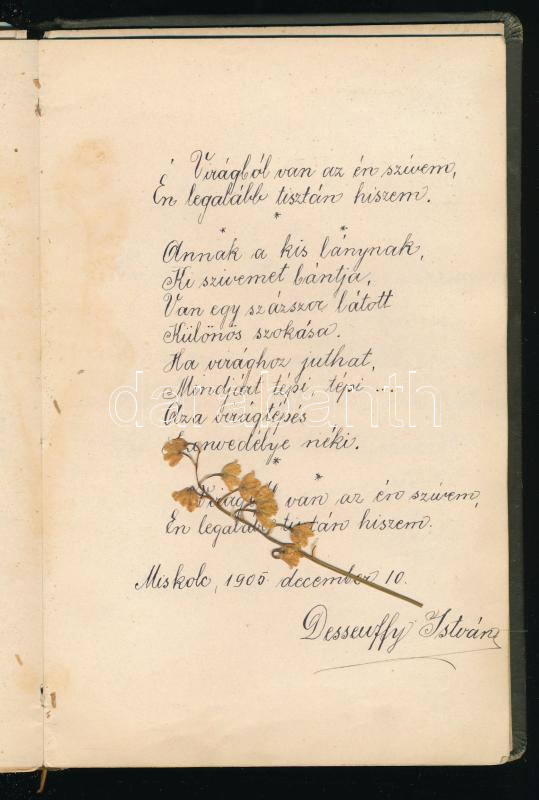 Virágból van az én szivem,
Én legalább tisztán hiszem.
* * *
Annak a kis lánynak,
Ki szivemet bántja,
Van egy százszor látott
Különös szokása.
Ha virághoz juthat,
Mindjárt tépi, tépi ...
Az a virágtépés
Szenvedélye néki.
* * *
Virágból van az én szivem,
Én legalább tisztán hiszem.
Miskolc, 1905 december 10.
Desseuffy István
darabanth